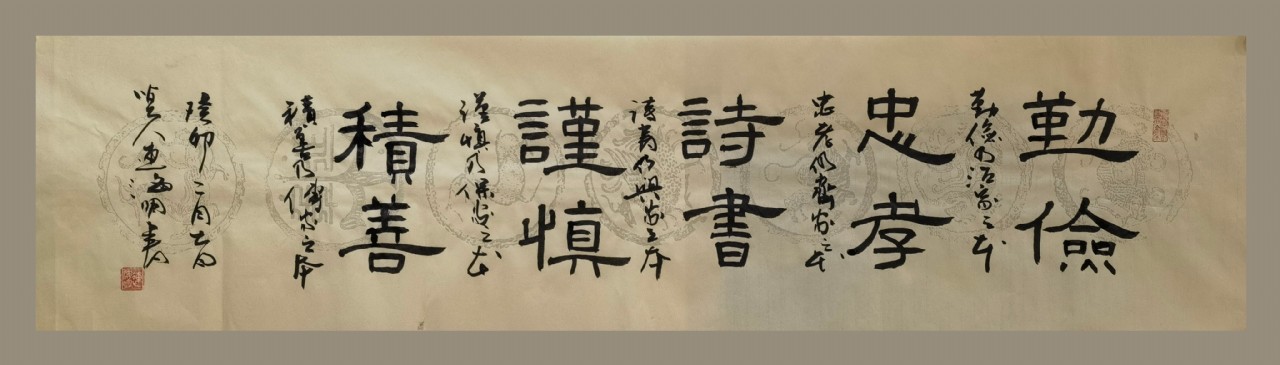 勤儉
勤儉乃治家之本
忠孝
忠孝乃齊家之本
詩書
詩書乃興家之本
謹慎
謹慎乃保家之本
積善
積善乃傳家之本
癸卯二月